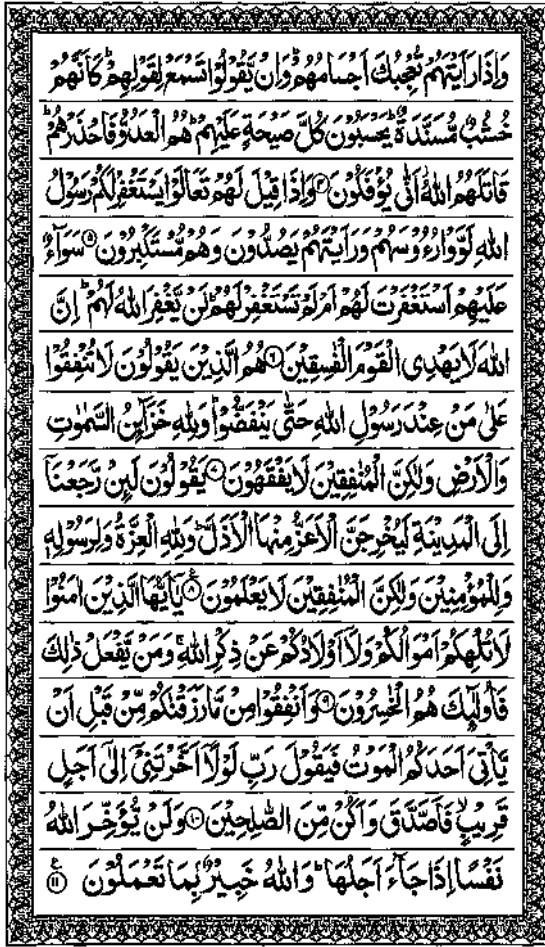 وَاِذَا رَاَيْتَهُمْ تُعْجِبُكَ اَجْسَامُهُمْ ؕ وَاِنْ يَّقُوْلُوْا تَسْمَعْ لِقَوْلِهِمْ ؕ كَاَنَّهُمْ
خُشُبٌ مُّسَنَّدَةٌ ؕ يَحْسَبُوْنَ كُلَّ صَيْحَةٍ عَلَيْهِمْ ؕ هُمُ الْعَدُوُّ فَاحْذَرْهُمْ ؕ
قَاتَلَهُمُ اللّٰهُ اَنّٰى يُؤْفَكُوْنَ ۴ وَاِذَا قِيْلَ لَهُمْ تَعَالَوْا يَسْتَغْفِرْ لَكُمْ رَسُوْلُ
اللّٰهِ لَوَّوْا رُءُوْسَهُمْ وَرَاَيْتَهُمْ يَصُدُّوْنَ وَهُمْ مُّسْتَكْبِرُوْنَ ۵ سَوَآءٌ
عَلَيْهِمْ اَسْتَغْفَرْتَ لَهُمْ اَمْ لَمْ تَسْتَغْفِرْ لَهُمْ ؕ لَنْ يَّغْفِرَ اللّٰهُ لَهُمْ ؕ اِنَّ
اللّٰهَ لَا يَهْدِى الْقَوْمَ الْفٰسِقِيْنَ ۶ هُمُ الَّذِيْنَ يَقُوْلُوْنَ لَا تُنْفِقُوْا
عَلٰى مَنْ عِنْدَ رَسُوْلِ اللّٰهِ حَتّٰى يَنْفَضُّوْا ؕ وَلِلّٰهِ خَزَآئِنُ السَّمٰوٰتِ
وَالْاَرْضِ وَلٰكِنَّ الْمُنٰفِقِيْنَ لَا يَفْقَهُوْنَ ۷ يَقُوْلُوْنَ لَئِنْ رَّجَعْنَآ
اِلَى الْمَدِيْنَةِ لَيُخْرِجَنَّ الْاَعَزُّ مِنْهَا الْاَذَلَّ ؕ وَلِلّٰهِ الْعِزَّةُ وَلِرَسُوْلِهٖ
وَلِلْمُؤْمِنِيْنَ وَلٰكِنَّ الْمُنٰفِقِيْنَ لَا يَعْلَمُوْنَ ۸ ع يٰۤاَيُّهَا الَّذِيْنَ اٰمَنُوْا
لَا تُلْهِكُمْ اَمْوَالُكُمْ وَلَاۤ اَوْلَادُكُمْ عَنْ ذِكْرِ اللّٰهِ ۚ وَمَنْ يَّفْعَلْ ذٰلِكَ
فَاُولٰٓئِكَ هُمُ الْخٰسِرُوْنَ ۹ وَاَنْفِقُوْا مِنْ مَّا رَزَقْنٰكُمْ مِّنْ قَبْلِ اَنْ
يَّاْتِىَ اَحَدَكُمُ الْمَوْتُ فَيَقُوْلَ رَبِّ لَوْلَاۤ اَخَّرْتَنِىْۤ اِلٰٓى اَجَلٍ
قَرِيْبٍ ۙ فَاَصَّدَّقَ وَاَكُنْ مِّنَ الصّٰلِحِيْنَ ۱۰ وَلَنْ يُّؤَخِّرَ اللّٰهُ
نَفْسًا اِذَا جَآءَ اَجَلُهَا ؕ وَاللّٰهُ خَبِيْرٌۢ بِمَا تَعْمَلُوْنَ ۱۱ ع